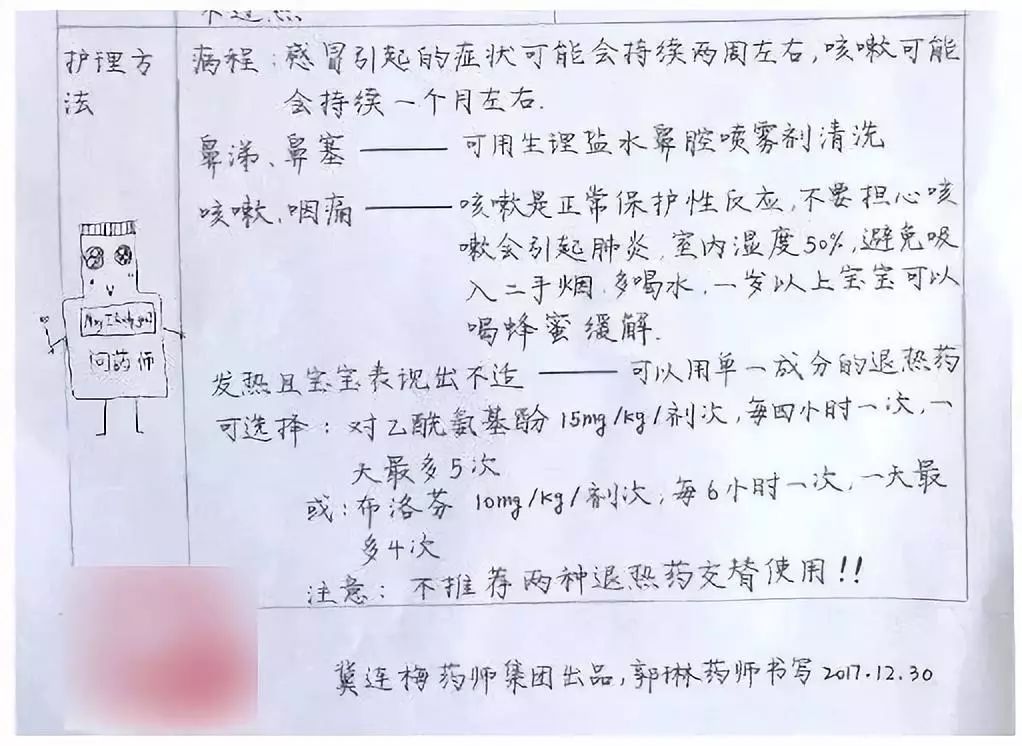 护理方
法
病程：感冒引起的症状可能会持续两周左右，咳嗽可能
会持续一个月左右.
鼻涕、鼻塞——可用生理盐水鼻腔喷雾剂清洗
咳嗽、咽痛——咳嗽是正常保护性反应，不要担心咳
嗽会引起肺炎，室内湿度50%，避免吸
入二手烟，多喝水，一岁以上宝宝可以
喝蜂蜜缓解.
问药师
发热且宝宝表现出不适——可以用单一成分的退热药
可选择：对乙酰氨基酚 15mg/kg/剂次，每四小时一次，一
天最多5次
或：布洛芬 10mg/kg/剂次，每6小时一次，一天最
多4次
注意：不推荐两种退热药交替使用！！
冀连梅药师集团出品，郭琳药师书写 2017.12.30